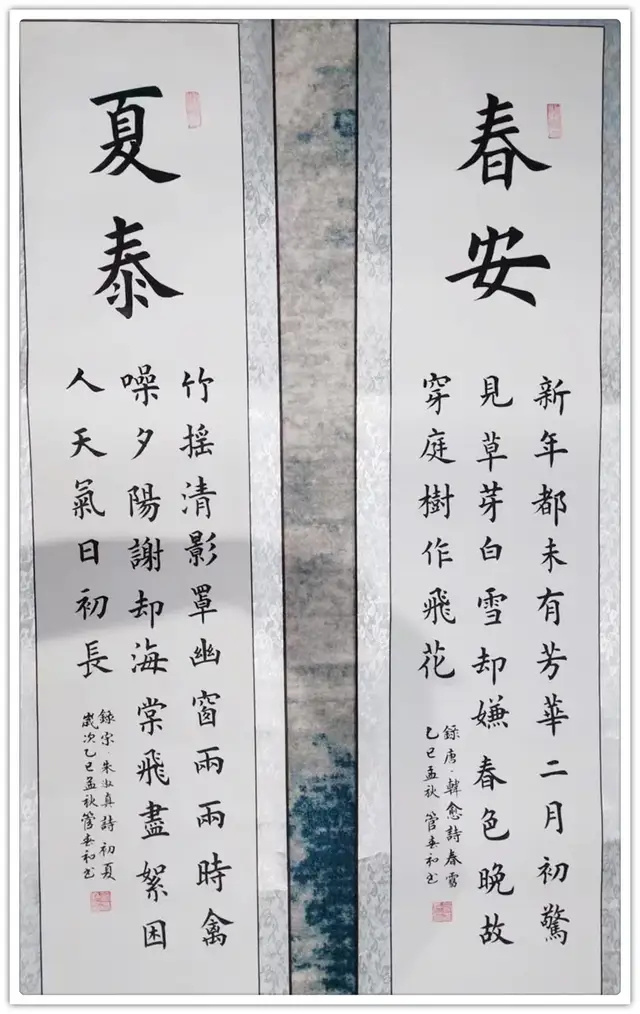 春安
新年都未有芳華二月初驚
見草芽白雪却嫌春色晚故
穿庭樹作飛花
録唐·韓愈詩春雪
乙巳孟秋管春和书
夏泰
竹摇清影罩幽窗兩兩時禽
噪夕陽謝却海棠飛盡絮困
人天氣日初長
録宋·朱淑真詩初夏
歲次乙巳孟秋管春和书